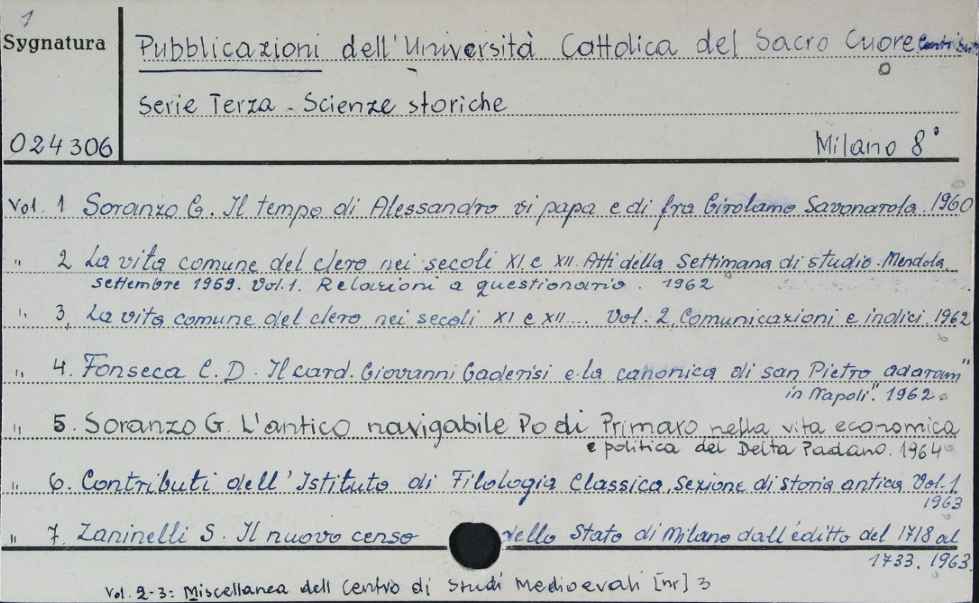 1
Sygnatura
Pubblicazioni dell'Università Cattolica del Sacro Cuore
Serie Terza - Scienze storiche
024306
Milano 8°
Vol. 1 Soranzo G. Il tempo di Alessandro vi papa e di fra Girolamo Savonarola. 1960
" 2 La vita comune del clero nei secoli XI e XII. Atti della settimana di studio. Mendola,
settembre 1959. Vol. 1. Relazioni a questionario. 1962
" 3, La vita comune del clero nei secoli XI e XII... Vol. 2, Comunicazioni e indici. 1962
" 4. Fonseca C. D. Il card. Giovanni Gaderisi e la canonica di san Pietro adaram"
in Napoli". 1962.
" 5. Soranzo G. L'antico navigabile Po di Primaro nella vita economica
e politica del Delta Padano. 1964
" 6. Contributi dell'Istituto di Filologia Classica, Sezione di storia antica Vol. 1
1963
" 7. Zaninelli S. Il nuovo censo dello Stato di Milano dall'éditto del 1718 al
1733. 1963.
Vol. 2-3: Miscellanea dell Centro di Studi Medioevali [nr] 3